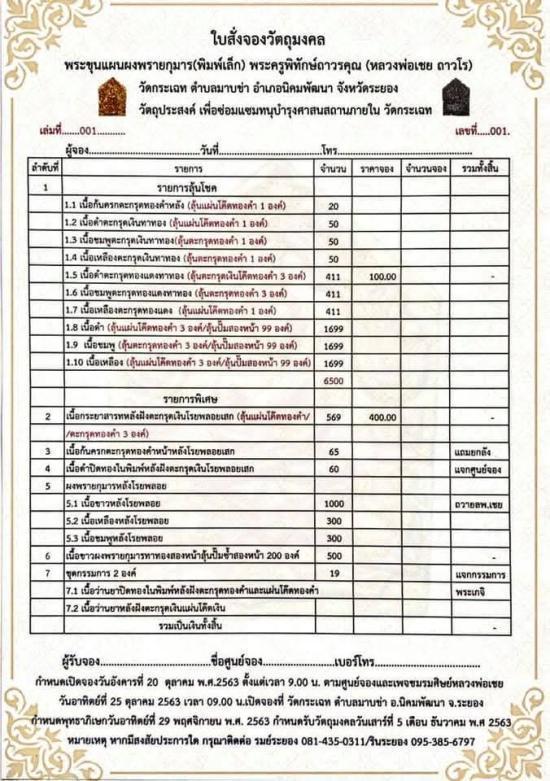 ใบสั่งจองวัตถุมงคล
พระขุนแผนผงพรายกุมาร(พิมพ์เล็ก) พระครูพิทักษ์ถาวรคุณ (หลวงพ่อเชย ถาวโร)
วัดกระเฉท ตำบลมาบข่า อำเภอนิคมพัฒนา จังหวัดระยอง
วัตถุประสงค์ เพื่อซ่อมแซมทนุบำรุงศาสนสถานภายใน วัดกระเฉท
เล่มที่.......001........... เลขที่.....001.
ผู้จอง.....................................วันที่...................................โทร.............................................
ลำดับที่ รายการ จำนวน ราคาจอง จำนวนจอง รวมทั้งสิ้น
1 รายการลุ้นโชค
1.1 เนื้อก้นครกตะกรุดทองคำหลัง (ลุ้นแผ่นโค๊ตทองคำ 1 องค์) 20
1.2 เนื้อดำตะกรุดเงินทาทอง (ลุ้นแผ่นโค๊ตทองคำ 1 องค์) 50
1.3 เนื้อชมพูตะกรุดเงินทาทอง(ลุ้นตะกรุดทองคำ 1 องค์) 50
1.4 เนื้อเหลืองตะกรุดเงินทาทอง (ลุ้นตะกรุดทองคำ 1 องค์) 50
1.5 เนื้อดำตะกรุดทองแดงทาทอง (ลุ้นตะกรุดเงินโค๊ตทองคำ 3 องค์) 411 100.00 -
1.6 เนื้อชมพูตะกรุดทองแดงทาทอง (ลุ้นตะกรุดทองคำ 3 องค์) 411
1.7 เนื้อเหลืองตะกรุดทองแดง (ลุ้นแผ่นโค๊ตทองคำ 1 องค์) 411
1.8 เนื้อดำ (ลุ้นแผ่นโค๊ตทองคำ 3 องค์/ลุ้นปั๊มสองหน้า 99 องค์) 1699
1.9 เนื้อชมพู (ลุ้นตะกรุดทองคำ 3 องค์/ลุ้นปั๊มสองหน้า 99 องค์) 1699
1.10 เนื้อเหลือง (ลุ้นแผ่นโค๊ตทองคำ 3 องค์/ลุ้นปั๊มสองหน้า 99 องค์) 1699
6500
รายการพิเศษ
2 เนื้อกระยาสารทหลังฝังตะกรุดเงินโรยพลอยเสก (ลุ้นแผ่นโค๊ตทองคำ/ 569 400.00 -
/ตะกรุดทองคำ 3 องค์)
3 เนื้อก้นครกตะกรุดทองคำหน้าหลังโรยพลอยเสก 65 แถมยกลัง
4 เนื้อดำปิดทองในพิมพ์หลังฝังตะกรุดเงินโรยพลอยเสก 60 แจกศูนย์จอง
5 ผงพรายกุมารหลังโรยพลอย
5.1 เนื้อขาวหลังโรยพลอย 1000 ถวายลพ.เชย
5.2 เนื้อเหลืองหลังโรยพลอย 300
5.3 เนื้อชมพูหลังโรยพลอย 300
6 เนื้อขาวผงพรายกุมารทาทองสองหน้าลุ้นปั๊มซ้ำสองหน้า 200 องค์ 500 -
7 ชุดกรรมการ 2 องค์ 19 แจกกรรมการ
7.1 เนื้อว่านยาปิดทองในพิมพ์หลังฝังตะกรุดทองคำและแผ่นโค๊ตทองคำ พระเกจิ
7.2 เนื้อว่านยาหลังฝังตะกรุดเงินแผ่นโค๊ตเงิน
รวมเป็นเงินทั้งสิ้น -
ผู้รับจอง...............................ชื่อศูนย์จอง..............................เบอร์โทร..............................
กำหนดเปิดจองวันอังคารที่ 20 ตุลาคม พ.ศ.2563 ตั้งแต่เวลา 9.00 น. ตามศูนย์จองและเพจชมรมศิษย์หลวงพ่อเชย
วันอาทิตย์ที่ 25 ตุลาคม 2563 เวลา 09.00 น.เปิดจองที่ วัดกระเฉท ตำบลมาบข่า อ.นิคมพัฒนา จ.ระยอง
กำหนดพุทธาภิเษกวันอาทิตย์ที่ 29 พฤศจิกายน พ.ศ. 2563 กำหนดรับวัตถุมงคลวันเสาร์ที่ 5 เดือน ธันวาคม พ.ศ 2563
หมายเหตุ หากมีสงสัยประการใด กรุณาติดต่อ รมย์ระยอง 081-435-0311/รินระยอง 095-385-6797